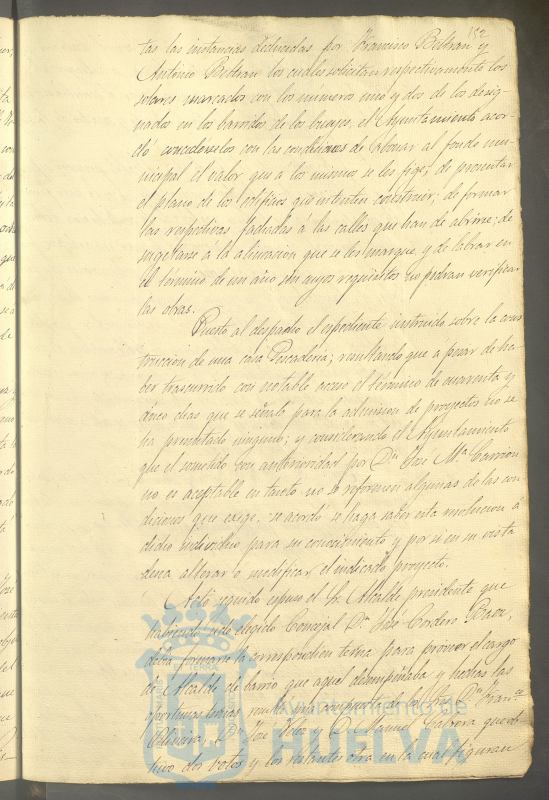 152
tas las instancias deducidas por Francisco Beltran y
Antonio Beltran los cuales solicitan respectivamente los
solares marcados con los numeros uno y dos de los desig-
nados en los barridos de los bueyes, el Ayuntamiento acor-
dó concederselos con las condiciones de abonar al fondo mu-
nicipal el valor que a los mismos se les fije; de presentar
el plano de los edificios que intenten construir; de formar
las respectivas fachadas á las calles que han de abrirse; de
sugetarse á la alineacion que se les marque, y de labrar en
el término de un año sin cuyos requisitos no podran verificar
las obras.
Puesto al despacho el espediente instruido sobre la cons-
truccion de una casa Pescaderia; resultando que a pesar de ha-
ber trascurrido con notable esceso el término de cuarenta y
cinco dias que se señaló para la admision de proyectos no se
ha presentado ninguno; y considerando el Ayuntamiento
que el sometido con anterioridad por Dn José Ma Carrion
no es aceptable en tanto no se reformen algunas de las con-
diciones que exige, se acordó se haga saber esta resolucion á
dicho individuo para su conocimiento y por si en su vista
desea alterar o modificar el indicado proyecto.
Acto seguido espuso el Sr. Alcalde presidente que
habiendo sido elegido Concejal Dn José Cordero
debia formarse la correspondiente terna para proveer el cargo
de Alcalde de barrio que aquel desempeñaba y hechas las
oportunas ternas resultó una compuesta de Dn Franco
Dn José Velez y D. Manuel Cabrera que ob-
tuvo dos votos y los restantes otra en la cual figuran
Ayuntamiento de
HUELVA